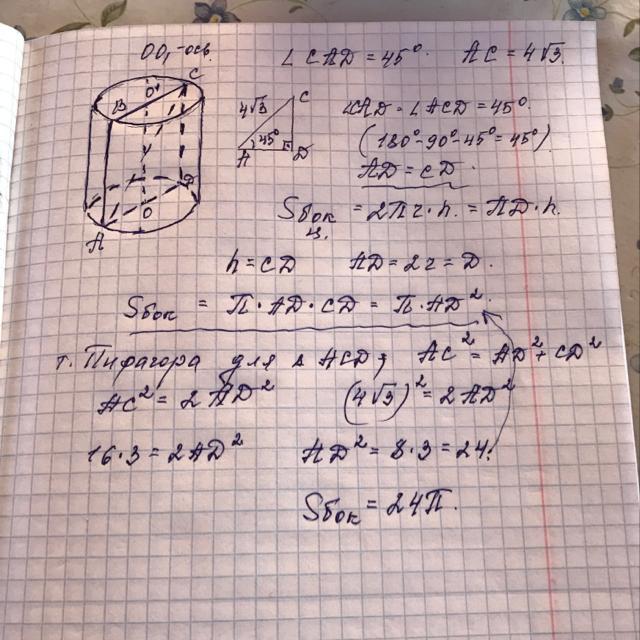 OO₁-ось.
∠CAD = 45° AC = 4√3.
B O' C
4√3 C
45°
A D
A O D
∠CAD = ∠ACD = 45°.
(180° - 90° - 45° = 45°)
AD = CD
Sбок ц. = 2πr·h. = πD·h.
h = CD AD = 2r = D.
Sбок = π·AD·CD = π·AD²
т. Пифагора для △ ACD; AC² = AD² + CD²
AC² = 2AD² (4√3)² = 2AD²
16·3 = 2AD² AD² = 8·3 = 24.
Sбок = 24π.